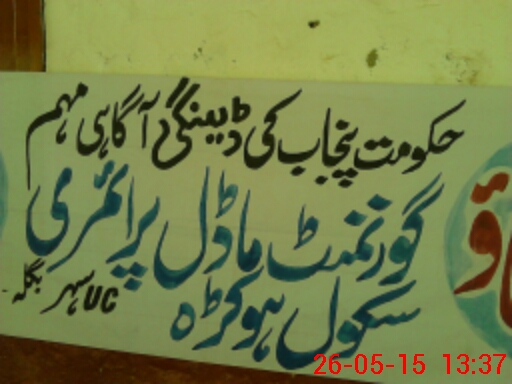 حکومت پنجاب کی ڈینگی آگاہی مہم
گورنمنٹ ماڈل پرائمری
سکول ہوکڑہ
UC سہر بگلہ
26-05-15 13:37